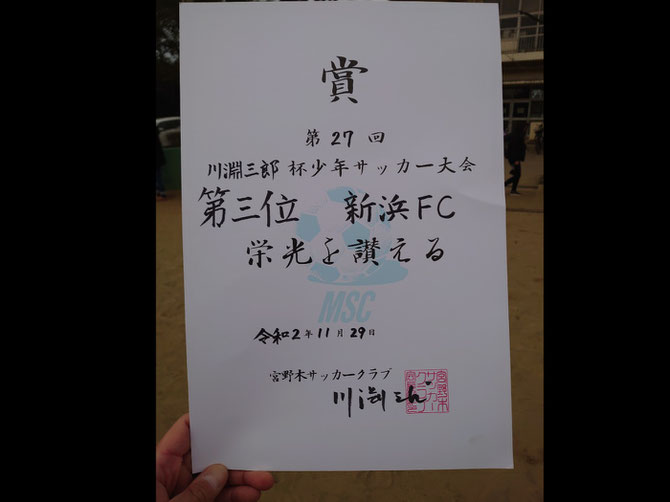 賞
第27回
川淵三郎 杯少年サッカー大会
第三位 新浜FC
栄光を讃える
MSC
令和2年11月29日
宮野木サッカークラブ
川淵三郎